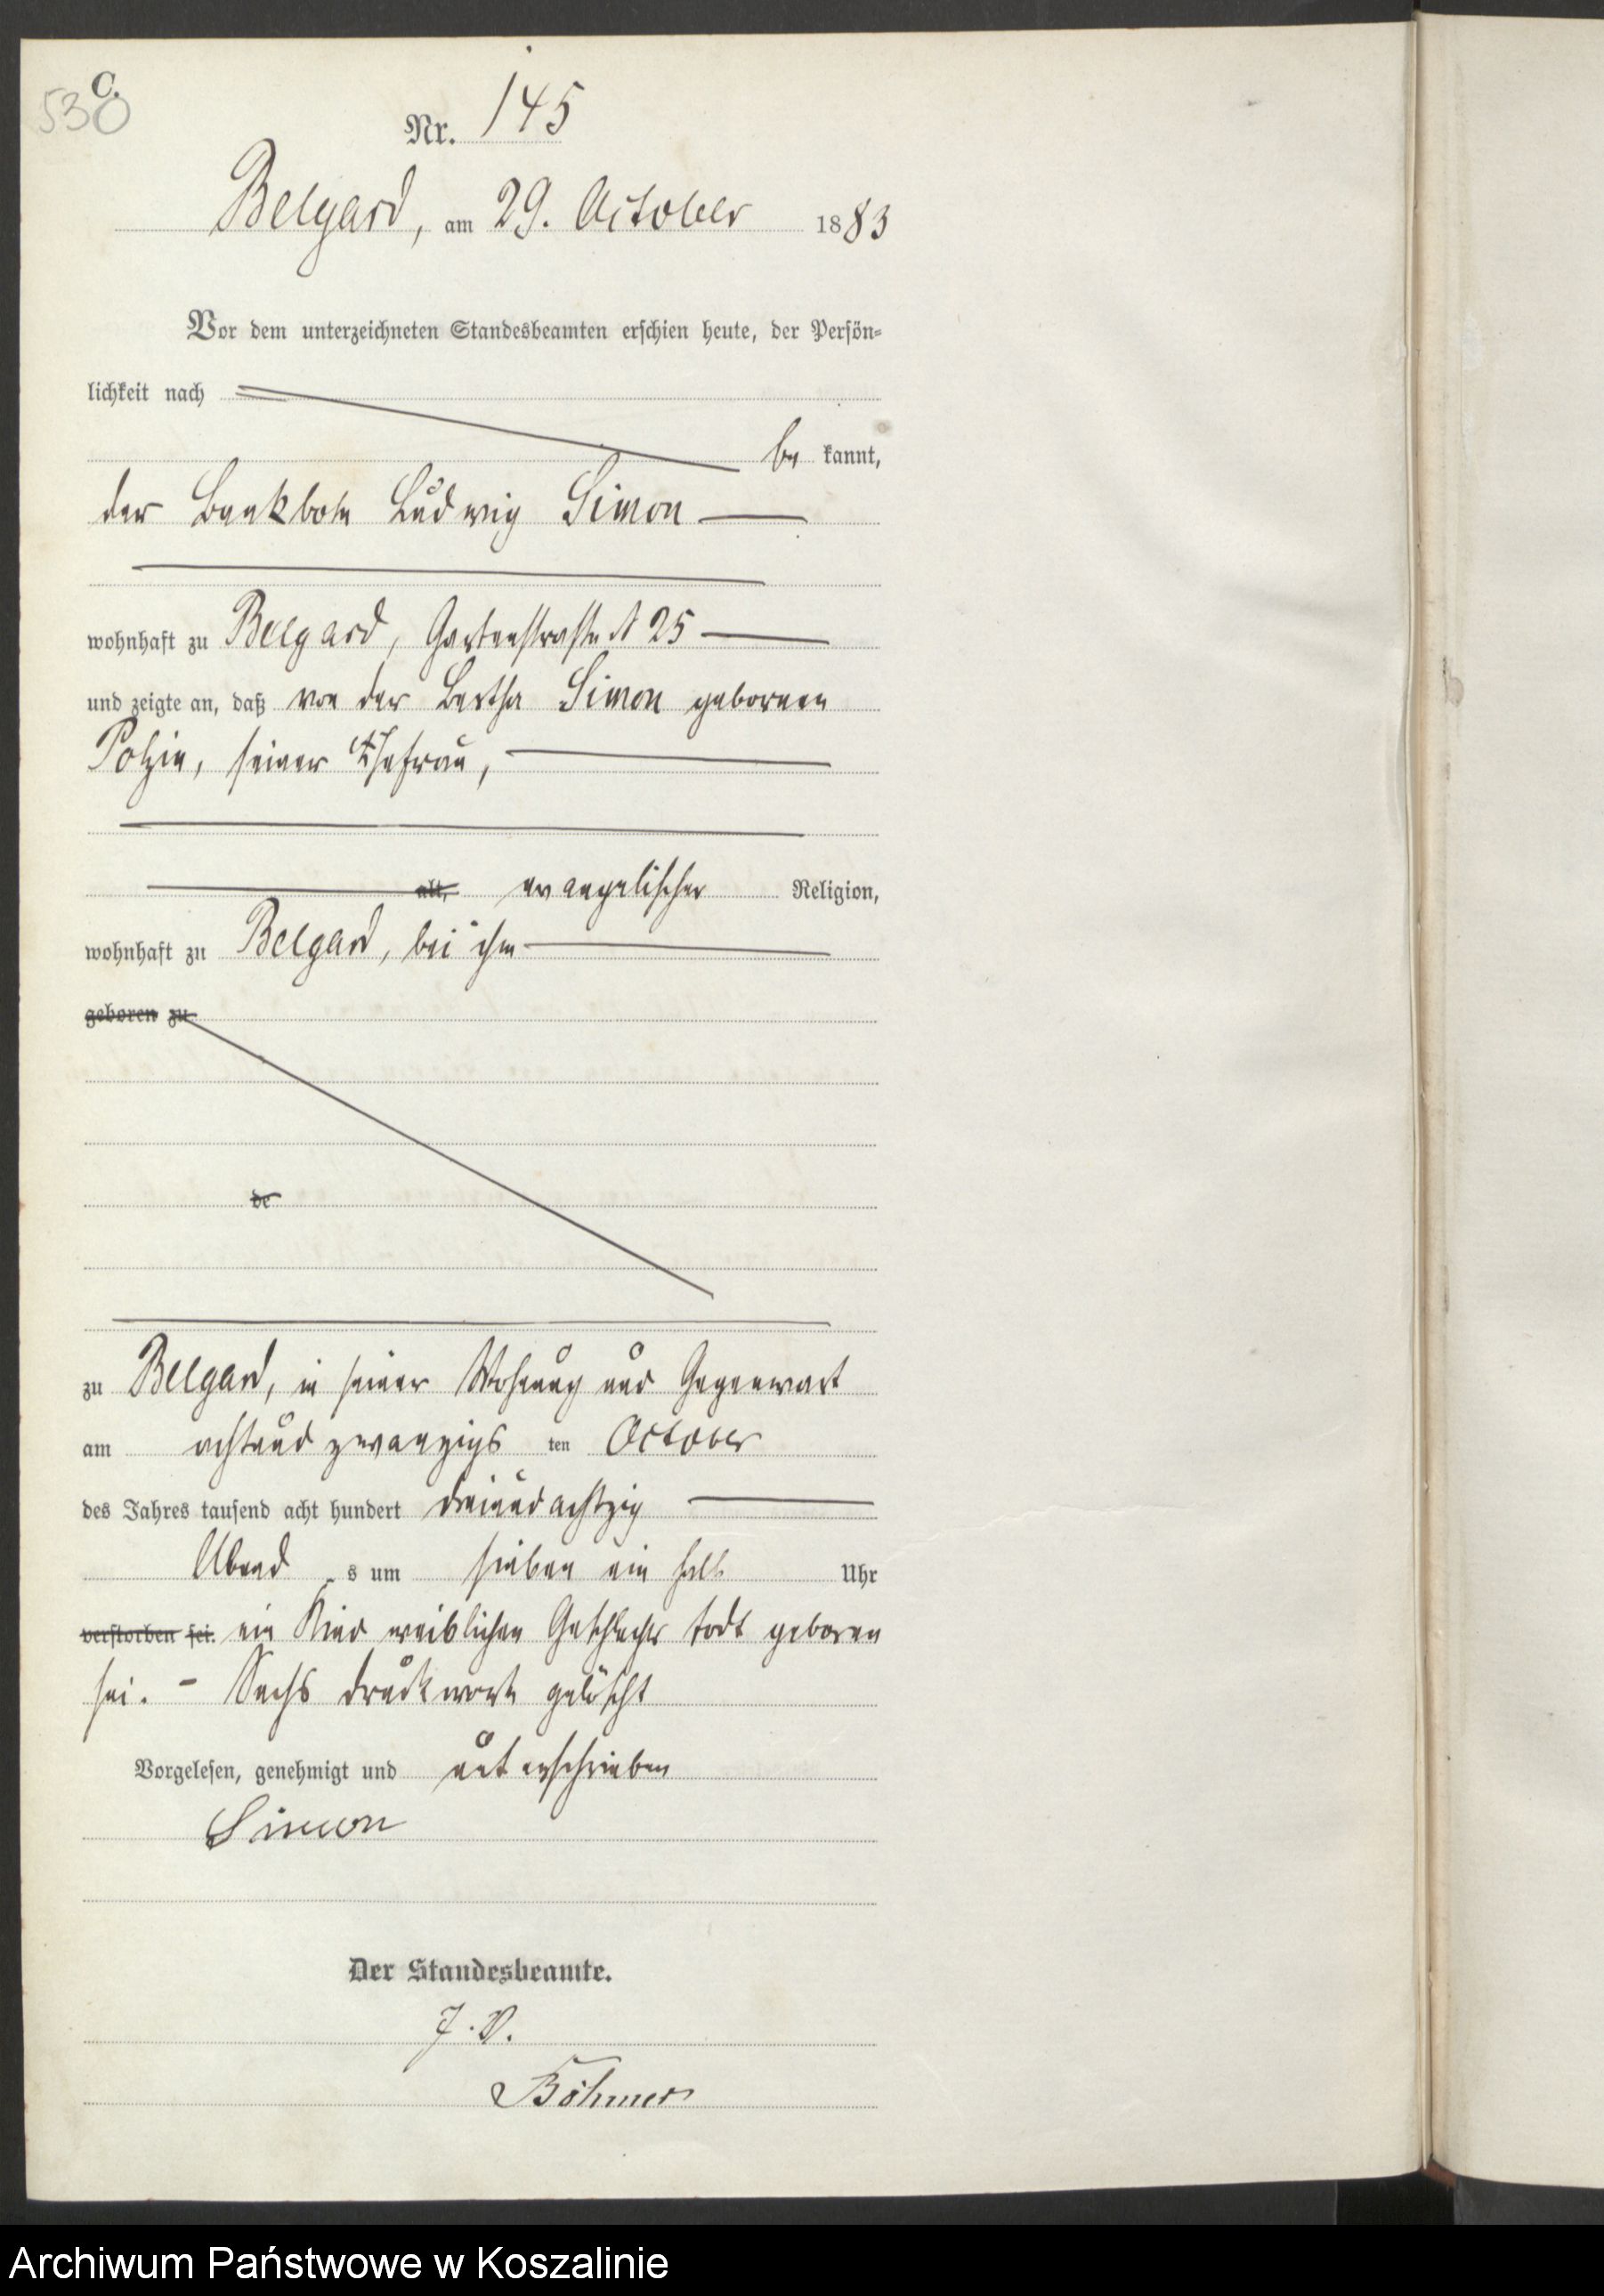 C.
530
Nr. 145
Belgard, am 29. October 1883
Vor dem unterzeichneten Standesbeamten erschien heute, der Persön-
lichkeit nach
be kannt,
der Bankbote Ludwig Simon
wohnhaft zu Belgard, Gartenstraße № 25
und zeigte an, daß von der Bertha Simon gebornen
Polzin, seiner Ehefrau,
alt, evangelischer Religion,
wohnhaft zu Belgard, bei ihm
geboren zu
de
zu Belgard, in seiner Wohnung und Gegenwart
am achtundzwanzigs ten October
des Jahres tausend acht hundert dreiundachtzig
Abend s um sieben ein halb Uhr
verstorben sei. ein Kind weiblichen Geschlechts todt geboren
sei. - Sechs Druckworte gelöscht
Vorgelesen, genehmigt und unterschrieben
Simon
Der Standesbeamte.
J. V.
Böhmer
Archiwum Państwowe w Koszalinie